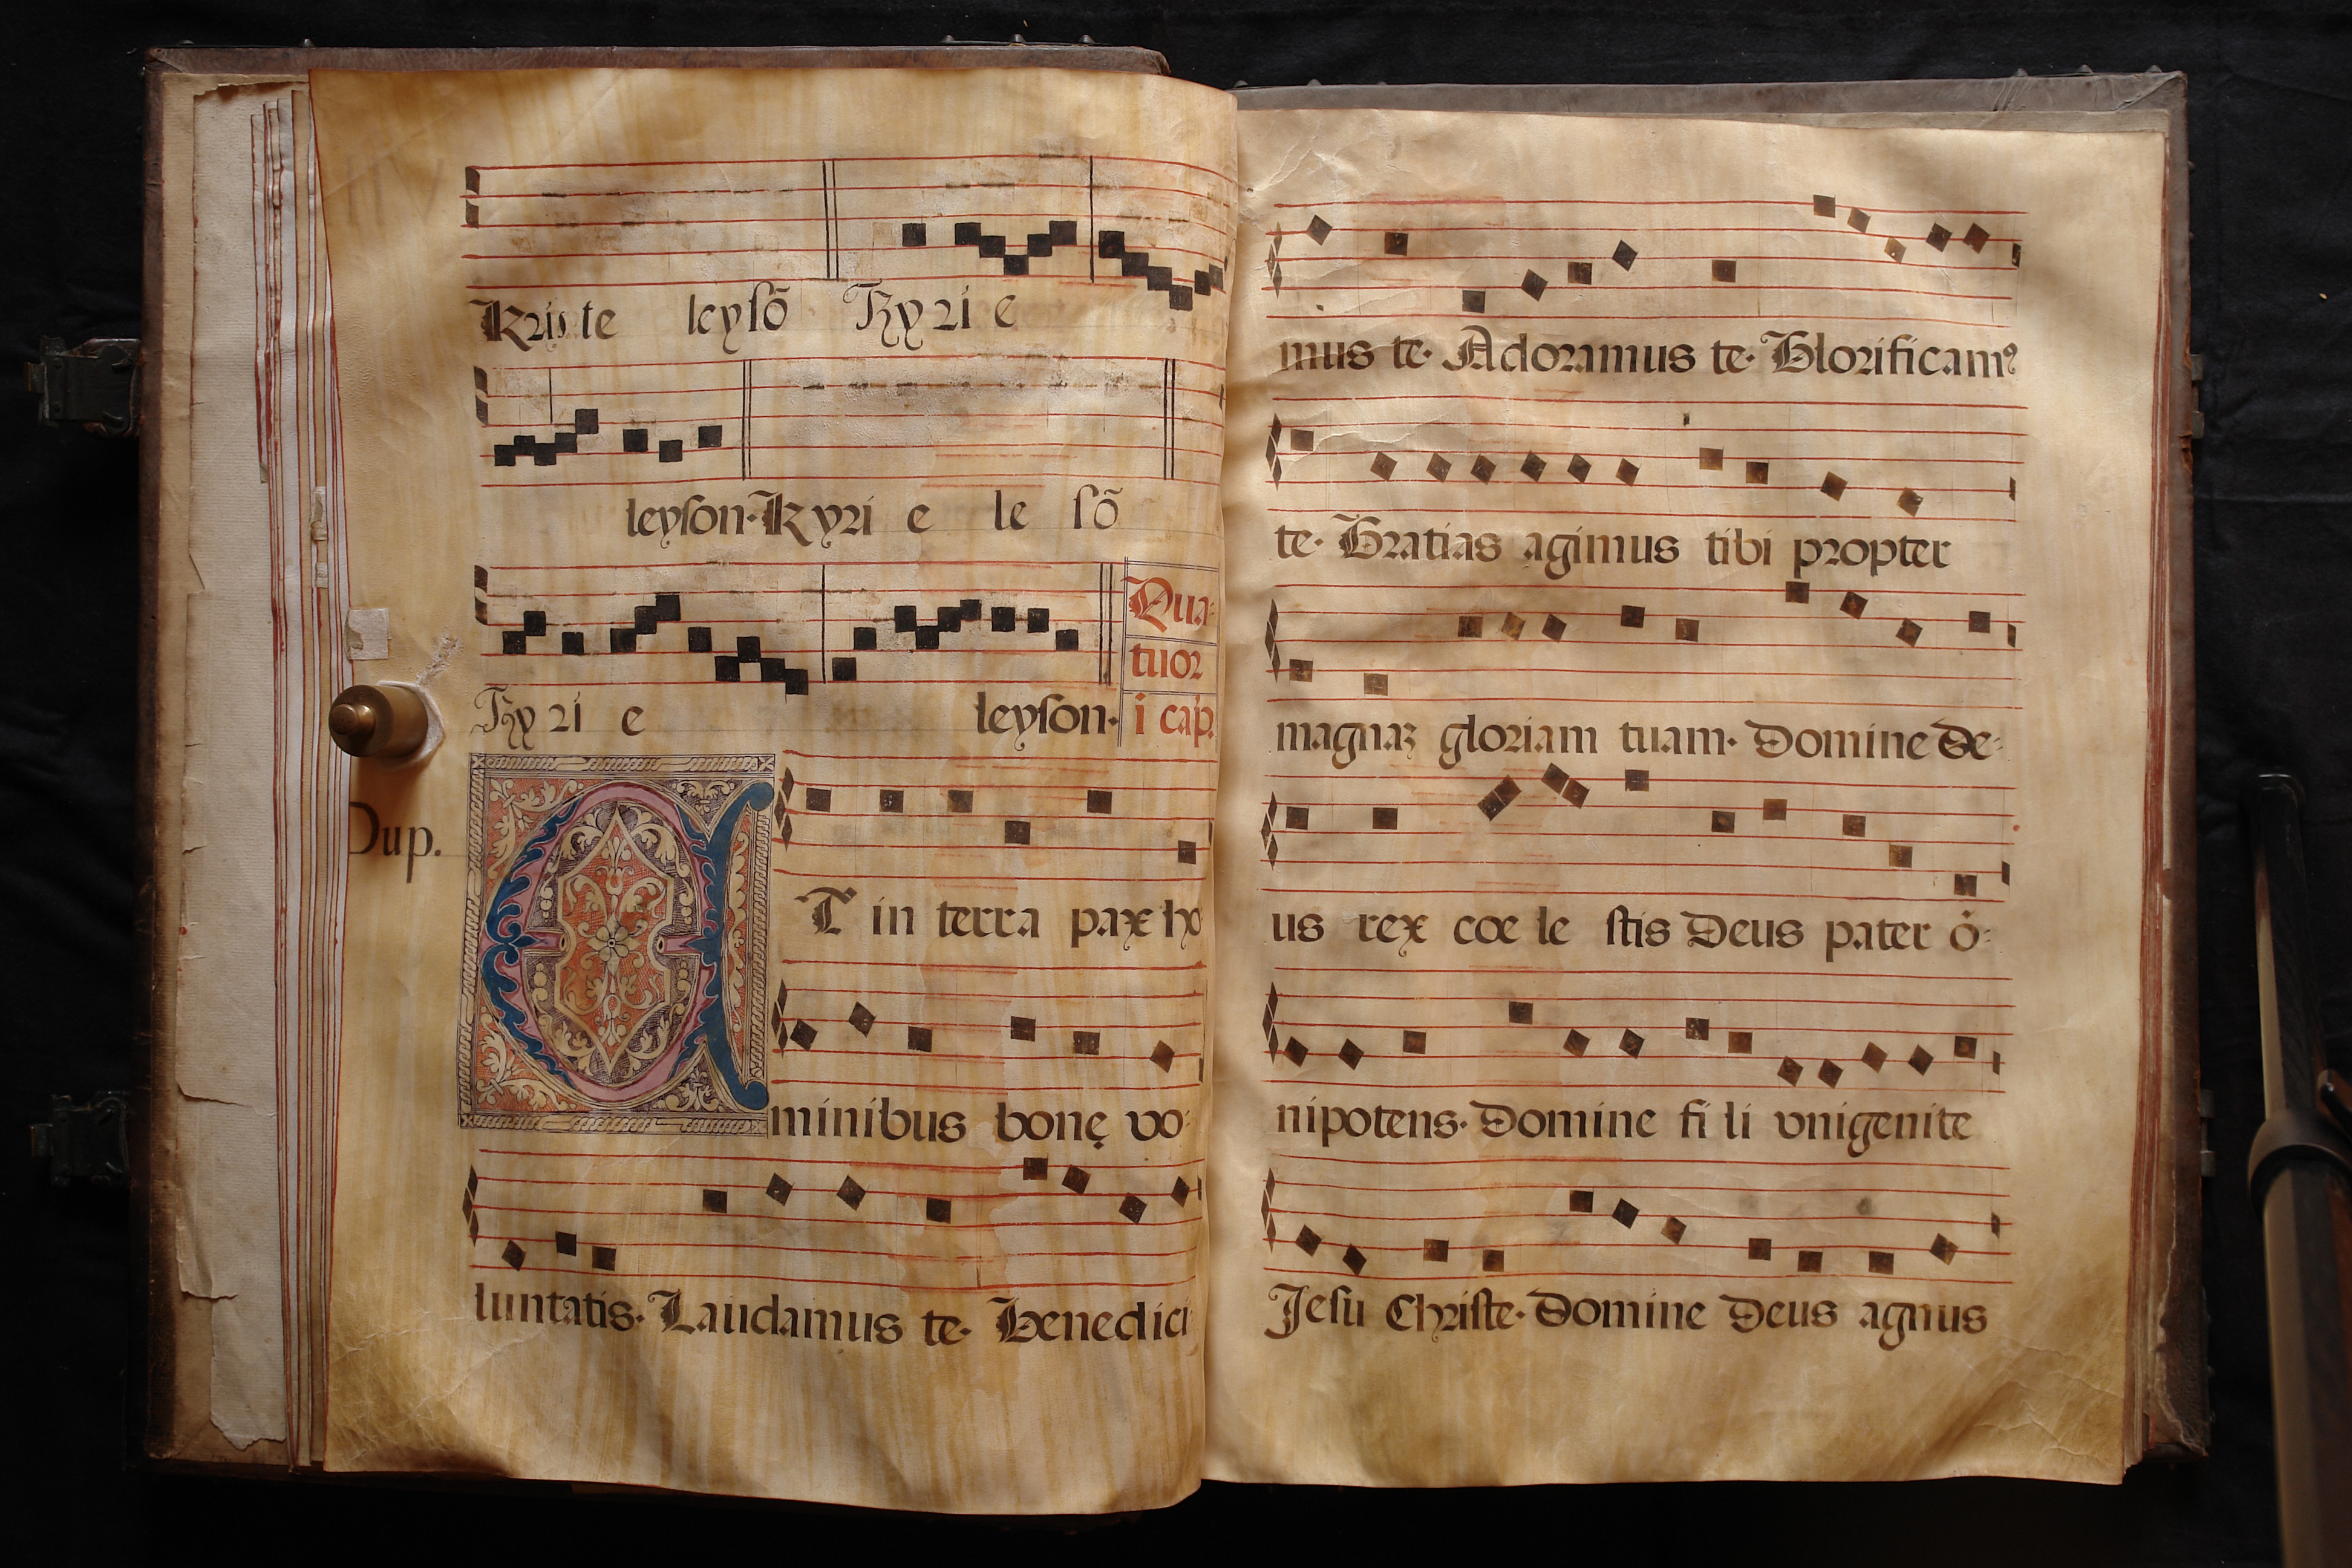 Kriste leysõ Kyri e
leyson. Kyri e le sõ
Qua-
tuor
i cap.
Kyri e leyson.
Dup.
ET in terra pax ho
minibus bonę vo-
luntatis. Laudamus te. Benedici
mus te. Adoramus te. Glorificamꝰ
te. Gratias agimus tibi propter
magnaꝫ gloriam tuam. Domine De-
us rex coe le stis Deus pater õ-
nipotens. Domine fi li vnigenite
Jesu Christe. Domine Deus agnus